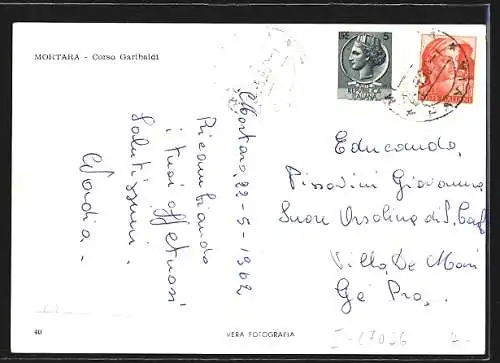 MORTARA - Corso Garibaldi
Mortara, 22-5-1962
Ricambiando
i tuoi affettuosi
saluti
Nadia.
Educanda,
Giovanna
Suore Orsoline di S. Carlo
Villa De
Ge Pra,
5
REPUBBLICA
ITALIANA
40
VERA FOTOGRAFIA
I-17026